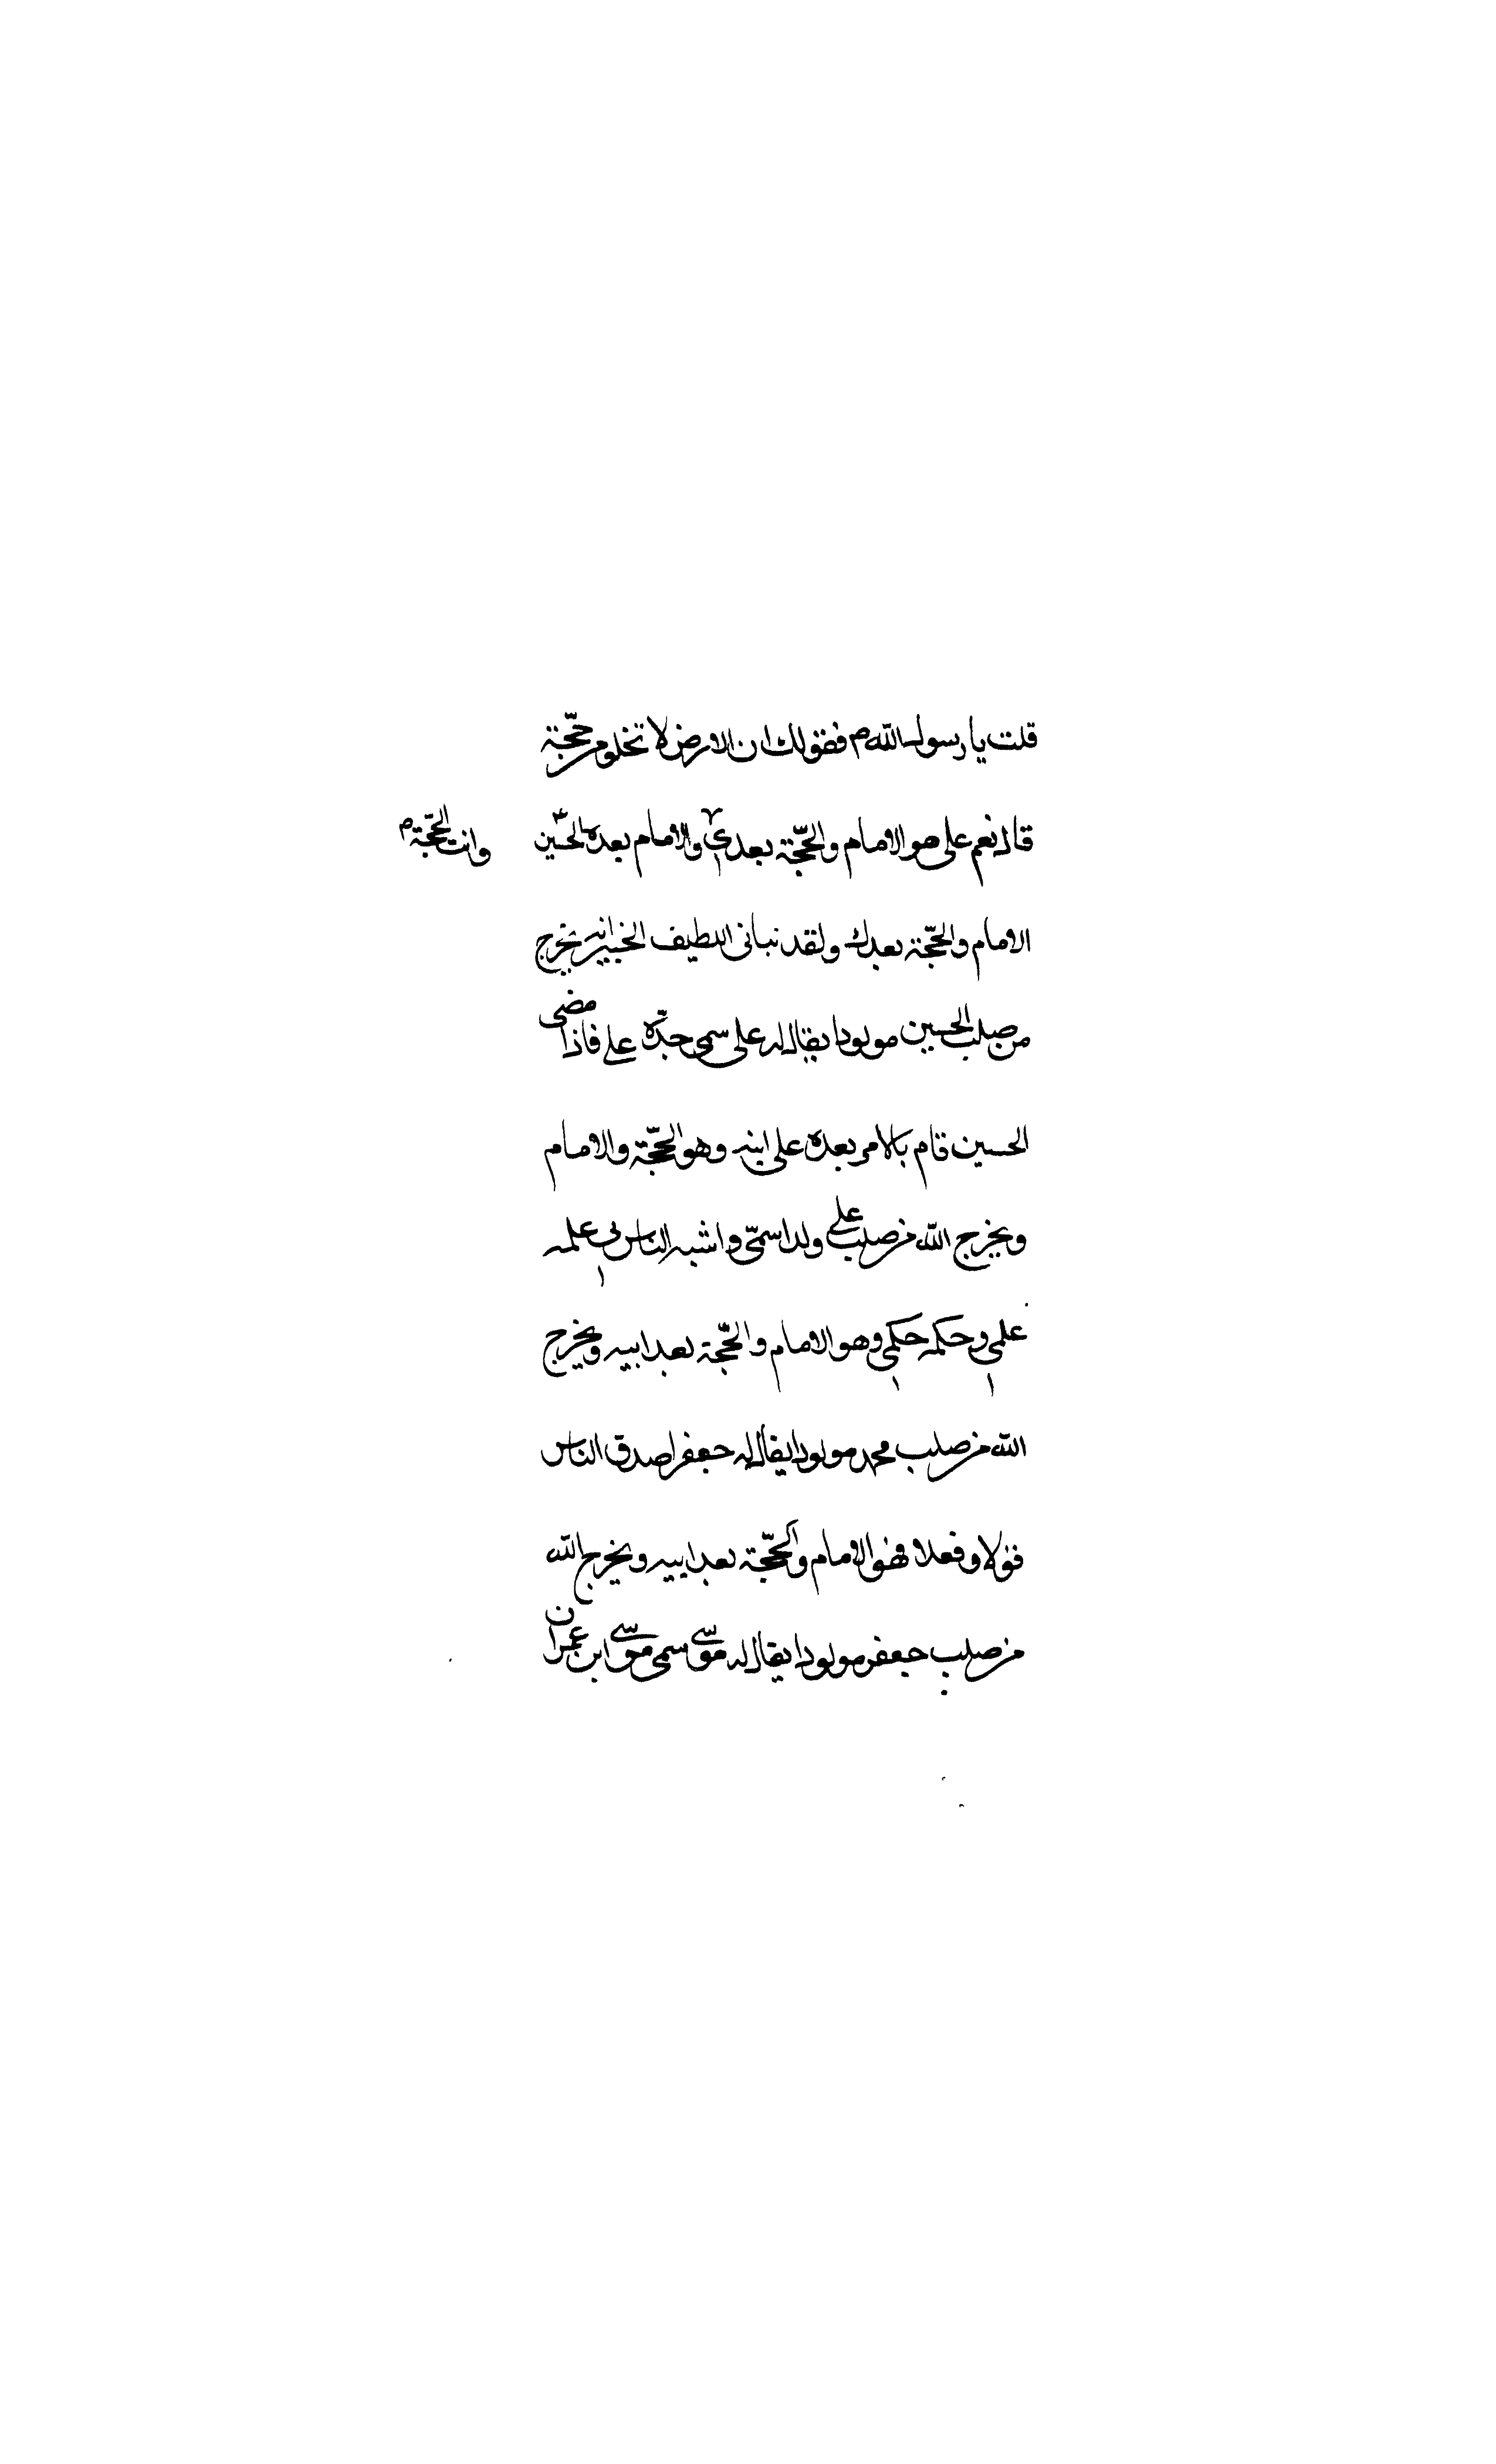 قلت يا رسول الله م فقولك ان الارض لا تخلو من حجّة
قال نعم على هو الامام والحجّة بعدي والامام بعده الحسين
وانت الحجّة م
الامام والحجّة بعدك ولقد نبانى اللطيف الخبير انه يخرج
من صلب الحسين مولودا يقال له على سمى جدّه على فاذا مضى
الحسين قام بالامر بعده على ابنه وهو الحجّة والامام
ويخرج الله من صلب على ولدا سمّى واشبه الناس بى علمه
علمى وحكمه حكمى وهو الامام والحجّة بعد ابيه ويخرج
الله من صلب محمد مولودا يقال له جعفر اصدق الناس
قولا وفعلا فهو الامام والحجّة بعد ابيه ويخرج الله
من صلب جعفر مولودا يقال له موسى سمى موسى ابن عمران